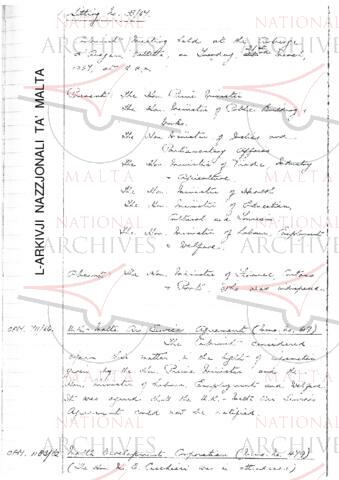 Sitting No. 33/64
Cabinet Meeting held at the Auberge
d'Aragon, Valletta, on Tuesday, 24th March,
at
Present: The Hon. Prime Minister
The Hon. Minister of Public Building &
Works.
The Hon. Minister of Justice and
Parliamentary Affairs
The Hon. Minister of Trade, Industry
& Agriculture
The Hon. Minister of Health
The Hon. Minister of Education,
Culture and Tourism
The Hon. Minister of Labour, Employment
& Welfare.
Absent: The Hon. Minister of Finance, Customs
& Port, who was indisposed.
U.K.-Malta Air Services Agreement (Memo. No. 419)
The Cabinet considered
again this matter in the light of
given by the Hon. Prime Minister and the
Hon. Minister of Labour, Employment and Welfare.
It was agreed that the U.K.-Malta Air Services
Agreement could not be ratified.
Malta Development Corporation (Memo. No. 479)
(The Hon. was in attendance)
L-ARKIVJI NAZZJONALI TA' MALTA
NATIONAL
MALTA
ARCHIVES